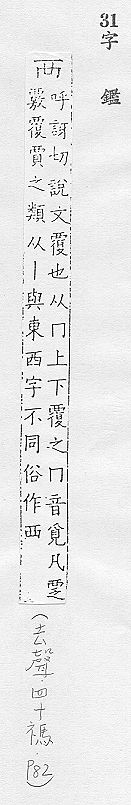 31字　鑑
襾
呼訝切說文覆也从冂上下覆之冂音覓凡覂
覈覆賈之類从丨與東西字不同俗作襾
(去聲·四十禡·P82)